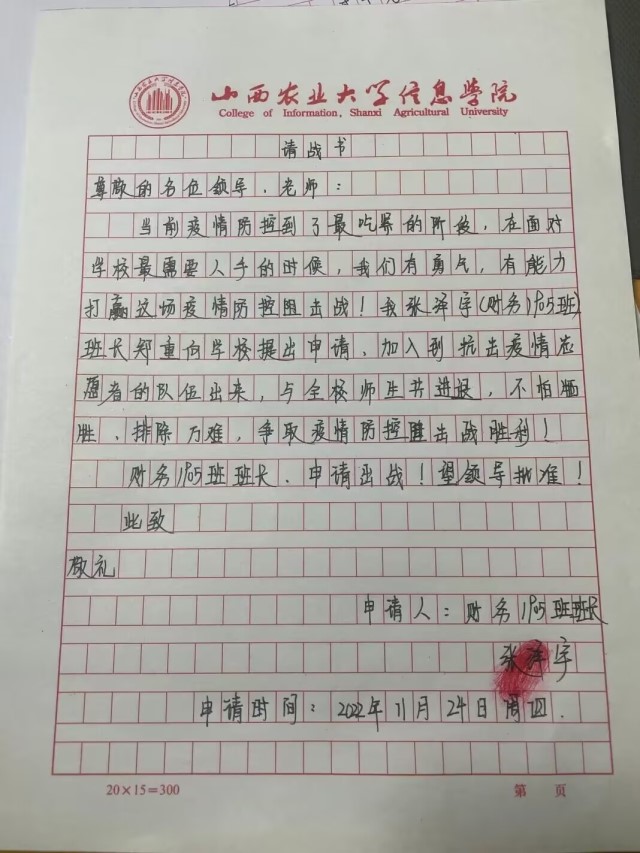 山西农业大学信息学院
College of Information, Shanxi Agricultural University
请战书
尊敬的各位领导、老师：
当前疫情防控到了最吃紧的阶段，在面对
学校最需要人手的时候，我们有勇气，有能力
打赢这场疫情防控阻击战！我张泽宇(财务1905班)
班长郑重向学校提出申请，加入到抗击疫情志
愿者的队伍出来，与全校师生共进退，不怕
、排除万难，争取疫情防控击战胜利！
财务1905班班长、申请出战！望领导批准！
此致
敬礼
申请人：财务1905班班长
张泽宇
申请时间：2022年11月24日 周四.
20×15=300
第 页